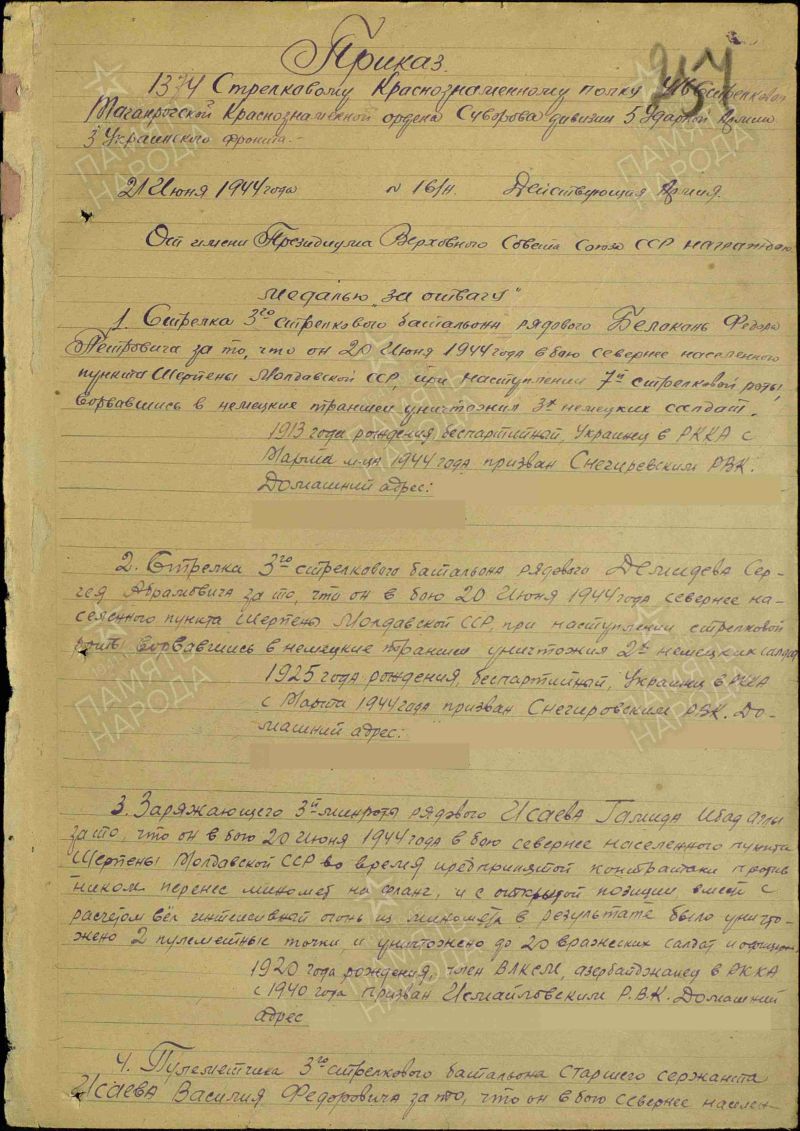 257
Приказ
1374 Стрелковому Краснознаменному полку 416 Стрелковой
Таганрогской Краснознаменной ордена Суворова дивизии 5 Ударной Армии
3 Украинского фронта.
21 Июня 1944 года № 16/н. Действующая Армия.
От имени Президиума Верховного Совета Союза ССР награждаю
медалью "За отвагу"
1. Стрелка 3го стрелкового батальона рядового Белокань Федора
Петровича за то, что он 20 Июня 1944 года в бою севернее населенного
пункта Шерпены Молдавской ССР, при наступлении 7й стрелковой роты,
ворвавшись в немецкие траншеи уничтожил 3х немецких солдат.
1913 года рождения, беспартийный, Украинец в РККА с
Марта м-ца 1944 года, призван Снегиревским РВК.
Домашний адрес:
2. Стрелка 3го стрелкового батальона рядового Демидева Сер-
гея Абрамовича за то, что он в бою 20 Июня 1944 года севернее на-
селенного пункта Шерпены Молдавской ССР, при наступлении стрелковой
роты ворвавшись в немецкие траншеи уничтожил 2х немецких солдат
1925 года рождения, беспартийный, Украинец в РККА
с Марта 1944 года призван Снегировским РВК. До-
машний адрес:
3. Заряжающего 3й минроты рядового Исаева Гамида Ибад Аглы
за то, что он в бою 20 Июня 1944 года в бою севернее населенного пункта
Шерпены Молдавской ССР во время предпринятой контратаки против
ником перенес миномет на фланг, и с открытой позиции вместе с
расчетом вёл интенсивный огонь из миномета в результате было уничто-
жено 2 пулеметные точки, и уничтожено до 20 вражеских солдат и офицеров.
1920 года рождения, член ВЛКСМ, азербайджанец в РККА
с 1940 года призван Исмайловским Р.В.К. Домашний
адрес
4. Пулеметчика 3го стрелкового батальона Старшего сержанта
Исаева Василия Федоровича за то, что он в бою севернее населен-